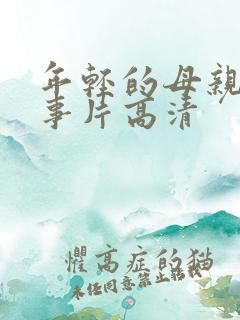 年轻的母亲
事片高清
惧高症的猫
未经同意禁止转载